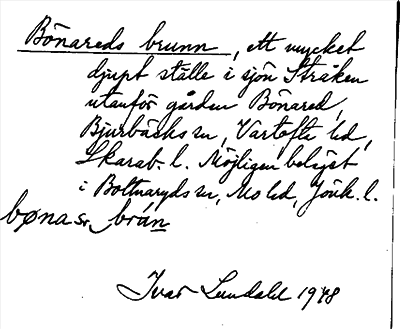 Bönareds brunn, ett mycket
djupt ställe i sjön Stråken
utanför gården Bönared,
Bjurbäcks sn, Vartofta hd,
Skarab. l. Möjligen beläget
i Bottnaryds sn, Mo hd, Jönk. l.
bønasr brún
Ivar Lundahl 1948